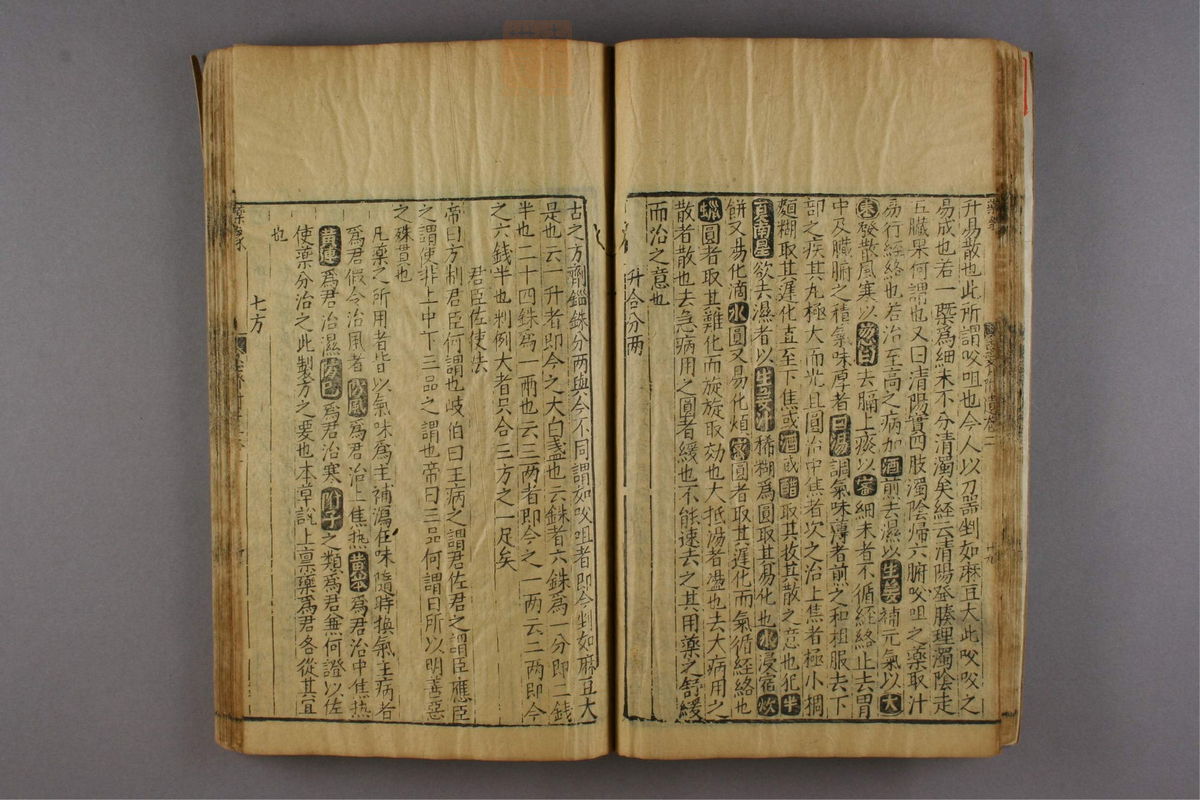 升易散也此所謂㕮咀也今人以刀器剉如麻豆大此㕮咀之
易成也若一槩爲細末不分清濁矣経云清陽發腠理濁陰走
五臟果何謂也又曰清陽實四肢濁陰歸六腑㕮咀之藥取汁
易行経絡也若治至高之病加酒煎去濕以生姜補元氣以大
棗發散風寒以葱白去膈上痰以蜜細末者不循経絡止去胃
中及臟腑之積氣味厚者白湯調氣味薄者煎之和柤服去下
部之疾其丸極大而光且圓治中焦者次之治上焦者極小稠
麵糊取其遲化直至下焦或酒或醋取其收其散之意也犯半
夏南星欲去濕者以生姜汁稀糊爲圓取其易化也水浸宿炊
餅又易化滴水圓又易化煩蜜圓者取其遲化而氣循経絡也
蠟圓者取其難化而旋旋取効也大抵湯者盪也去大病用之
散者散也去急病用之圓者緩也不能速去之其用藥之舒緩
而治之意也
升合分兩
古之方劑錙銖分两與今不同謂如㕮咀者即今剉如麻豆大
是也云一升者即今之大白盞也云銖者六銖爲一分即二錢
半也二十四銖爲一兩也云三两者即今之一两云二两即今
之六錢半也料例大者只合三方之一足矣
君臣佐使法
帝曰方制君臣何謂也岐伯曰主病之謂君佐君之謂臣應臣
之謂使非上中下三品之謂也帝曰三品何謂曰所以明善惡
之殊貫也
凡藥之所用者皆以氣味爲主補瀉在味隨時換氣主病者
爲君假令治風者防風爲君治上焦熱黄芩爲君治中焦熱
黄連爲君治濕防巳爲君治寒附子之類爲君兼何證以佐
使藥分治之此製方之要也本草說上禀藥爲君各從其宜
也
七方